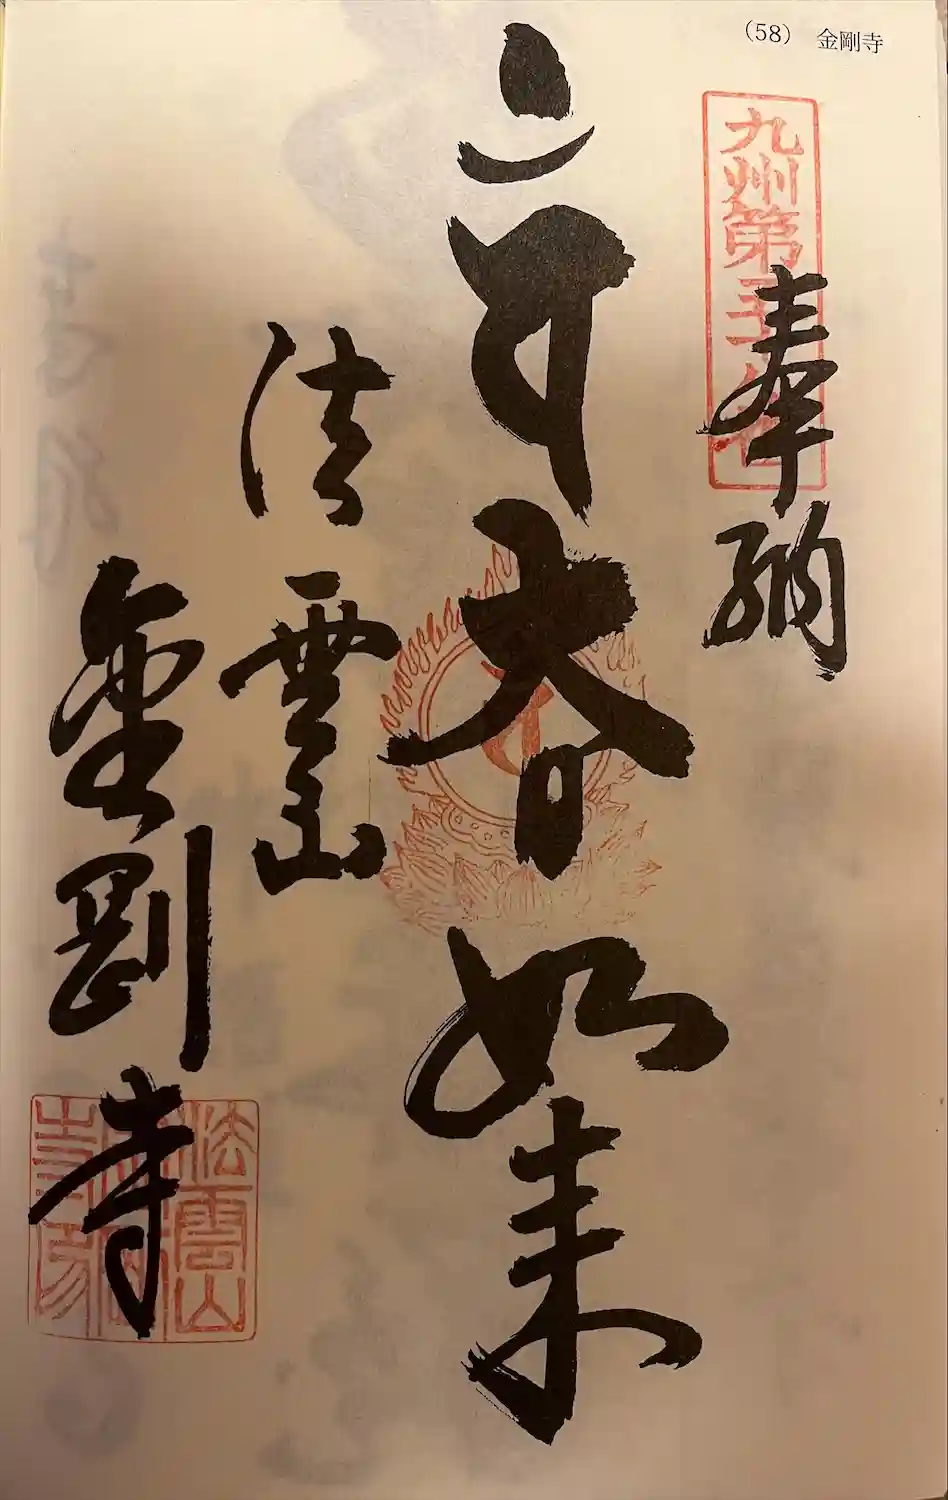 (58) 金剛寺
九州第五十八番
奉納
大日如来
法雲山
金剛寺
法雲山